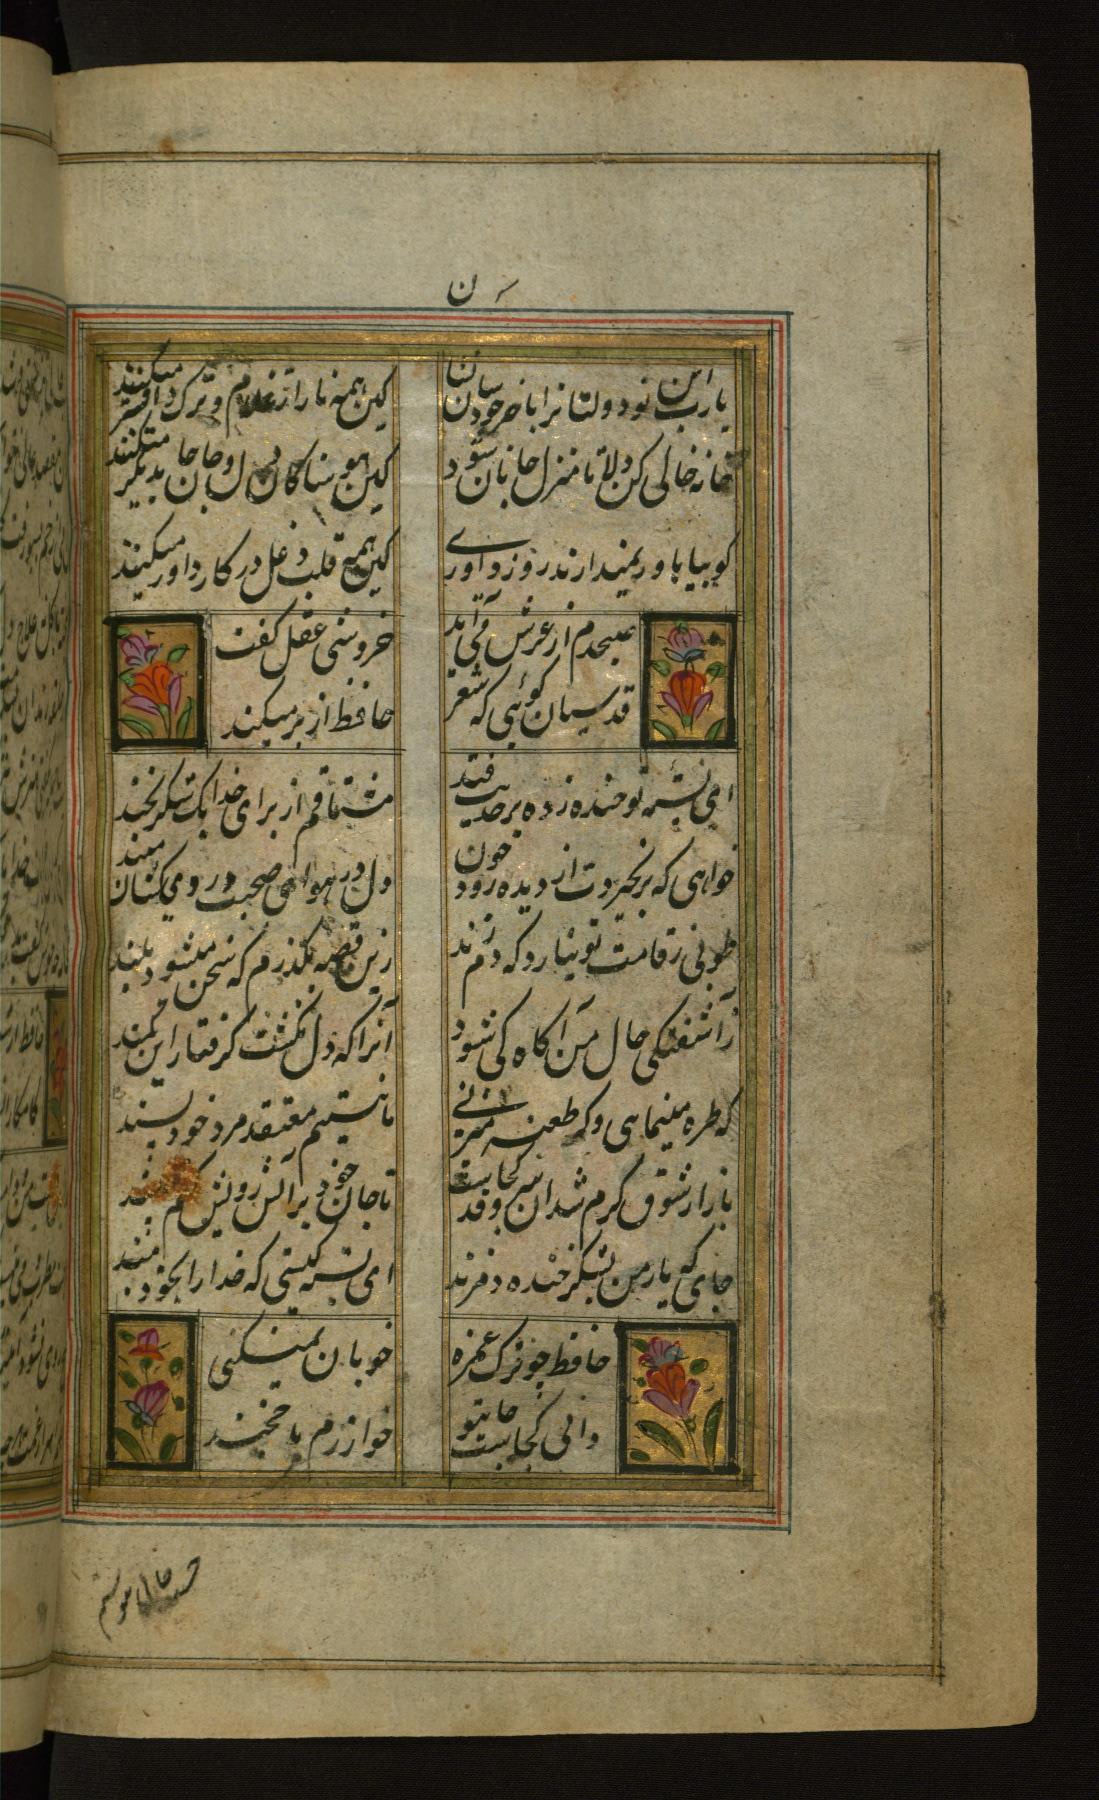 یارب این نودولتانرا با خر خودشان نشان
کین همه ناز از غلام و ترک و استر میکنند
خانه خالی کن دلا تا منزل جانان شود
کین هوسناکان دل و جان جای دیگر میکنند
گوییا باور نمیدارند روز داوری
کین همه قلب و دغل در کار داور میکنند
صبحدم از عرش می آمد
خروشی عقل گفت
قدسیان گوئی که شعر
حافظ از بر میکنند
ای پسته تو خنده زده بر حدیث قند
مشتاقم از برای خدا یک شکر بخند
خواهی که برنخیزدت از دیده رود خون
دل در هوای صحبت رود کسان مبند
طوبی ز قامت تو نیارد که دم زند
زین قصه بگذرم که سخن میشود بلند
ز آشفتگی حال من آگاه کی شود
آنرا که دل نگشت گرفتار این کمند
گه طره مینمایی و گه طعنه میزنی
ما نیستیم معتقد مرد خودپسند
بازار شوق گرم شد آن سروقد کجاست
تا جان خود بر آتش رویش کنم سپند
جای که یار من بشکر خنده دم زند
ای پسته کیستی که خدا را بخود مخند
حافظ چو ترک غمزه
خوبان نمیکنی
دانی کجاست جای تو
خوارزم یا خجند